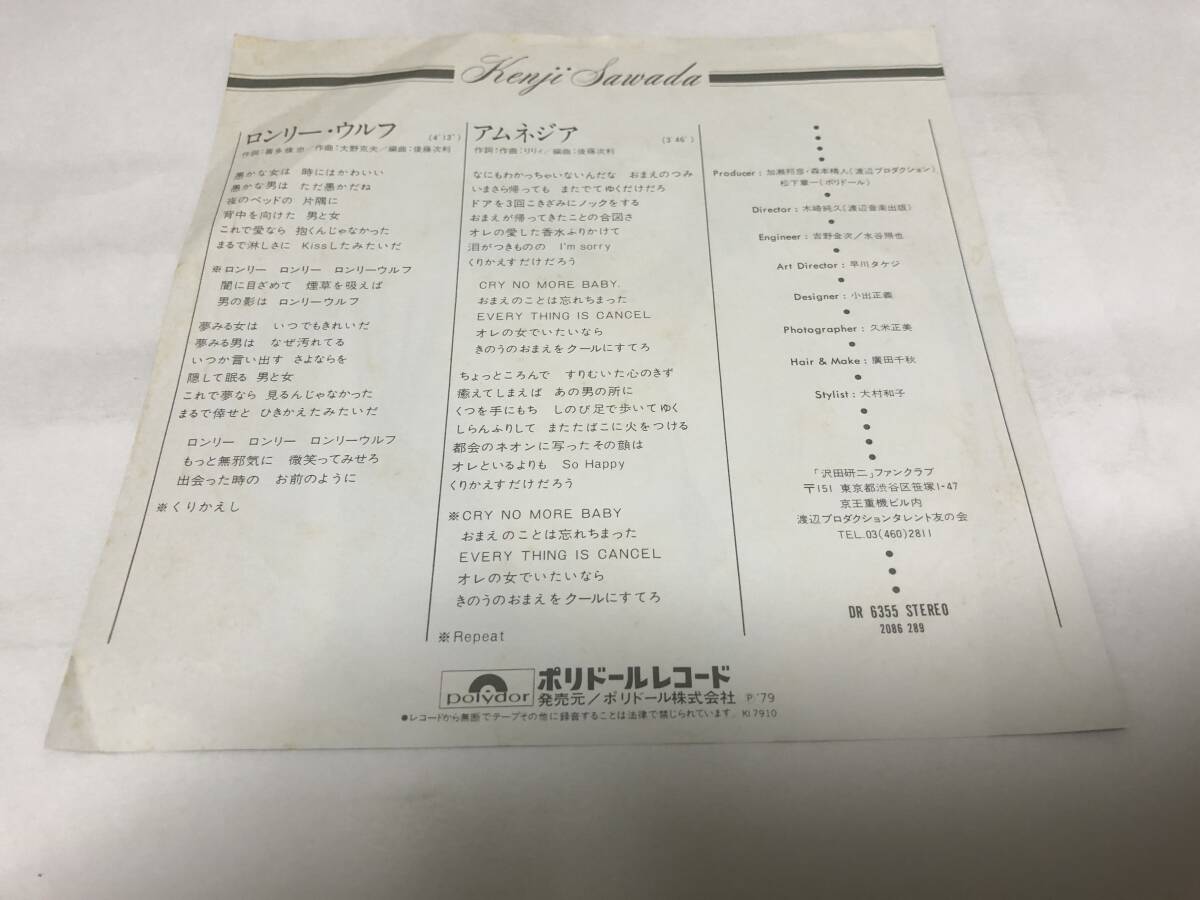 Kenji Sawada
ロンリー・ウルフ (4'13")
作詞:喜多條忠/作曲:大野克夫/編曲:後藤次利
愚かな女は 時にはかわいい
愚かな男は ただ愚かだね
夜のベッドの 片隅に
背中を向けた 男と女
これで愛なら 抱くんじゃなかった
まるで淋しさに Kissしたみたいだ
※ロンリー ロンリー ロンリーウルフ
闇に目ざめて 煙草を吸えば
男の影は ロンリーウルフ
夢みる女は いつでもきれいだ
夢みる男は なぜ汚れてる
いつか言い出す さよならを
隠して眠る 男と女
これで夢なら 見るんじゃなかった
まるで倖せと ひきかえたみたいだ
ロンリー ロンリー ロンリーウルフ
もっと無邪気に 微笑ってみせろ
出会った時の お前のように
※くりかえし
アムネジア (3'46")
作詞:作曲:リリィ/編曲:後藤次利
なにもわかっちゃいないんだな おまえのつみ
いまさら帰っても またでてゆくだけだろ
ドアを3回こきざみにノックをする
おまえが帰ってきたことの合図さ
オレの愛した香水ふりかけて
泪がつきものの I'm sorry
くりかえすだけだろう
CRY NO MORE BABY.
おまえのことは忘れちまった
EVERY THING IS CANCEL
オレの女でいたいなら
きのうのおまえをクールにすてろ
ちょっところんで すりむいた心のきず
癒えてしまえば あの男の所に
くつを手にもち しのび足で歩いてゆく
しらんふりして またたばこに火をつける
都会のネオンに写ったその顔は
オレといるよりも So Happy
くりかえすだけだろう
※CRY NO MORE BABY
おまえのことは忘れちまった
EVERY THING IS CANCEL
オレの女でいたいなら
きのうのおまえをクールにすてろ
※Repeat
Producer:加瀬邦彦・森本精人(渡辺プロダクション)
松下章一(ポリドール)
Director:木崎純久(渡辺音楽出版)
Engineer:吉野金次/水谷照也
Art Director:早川タケジ
Designer:小出正義
Photographer:久米正美
Hair & Make:廣田千秋
Stylist:大村和子
「沢田研二」ファンクラブ
〒151 東京都渋谷区笹塚1-47
京王重機ビル内
渡辺プロダクションタレント友の会
TEL.03(460)2811
DR 6355 STEREO
2086 289
polydor ポリドールレコード
発売元/ポリドール株式会社 P.'79
●レコードから無断でテープその他に録音することは法律で禁じられています。 Ki7910